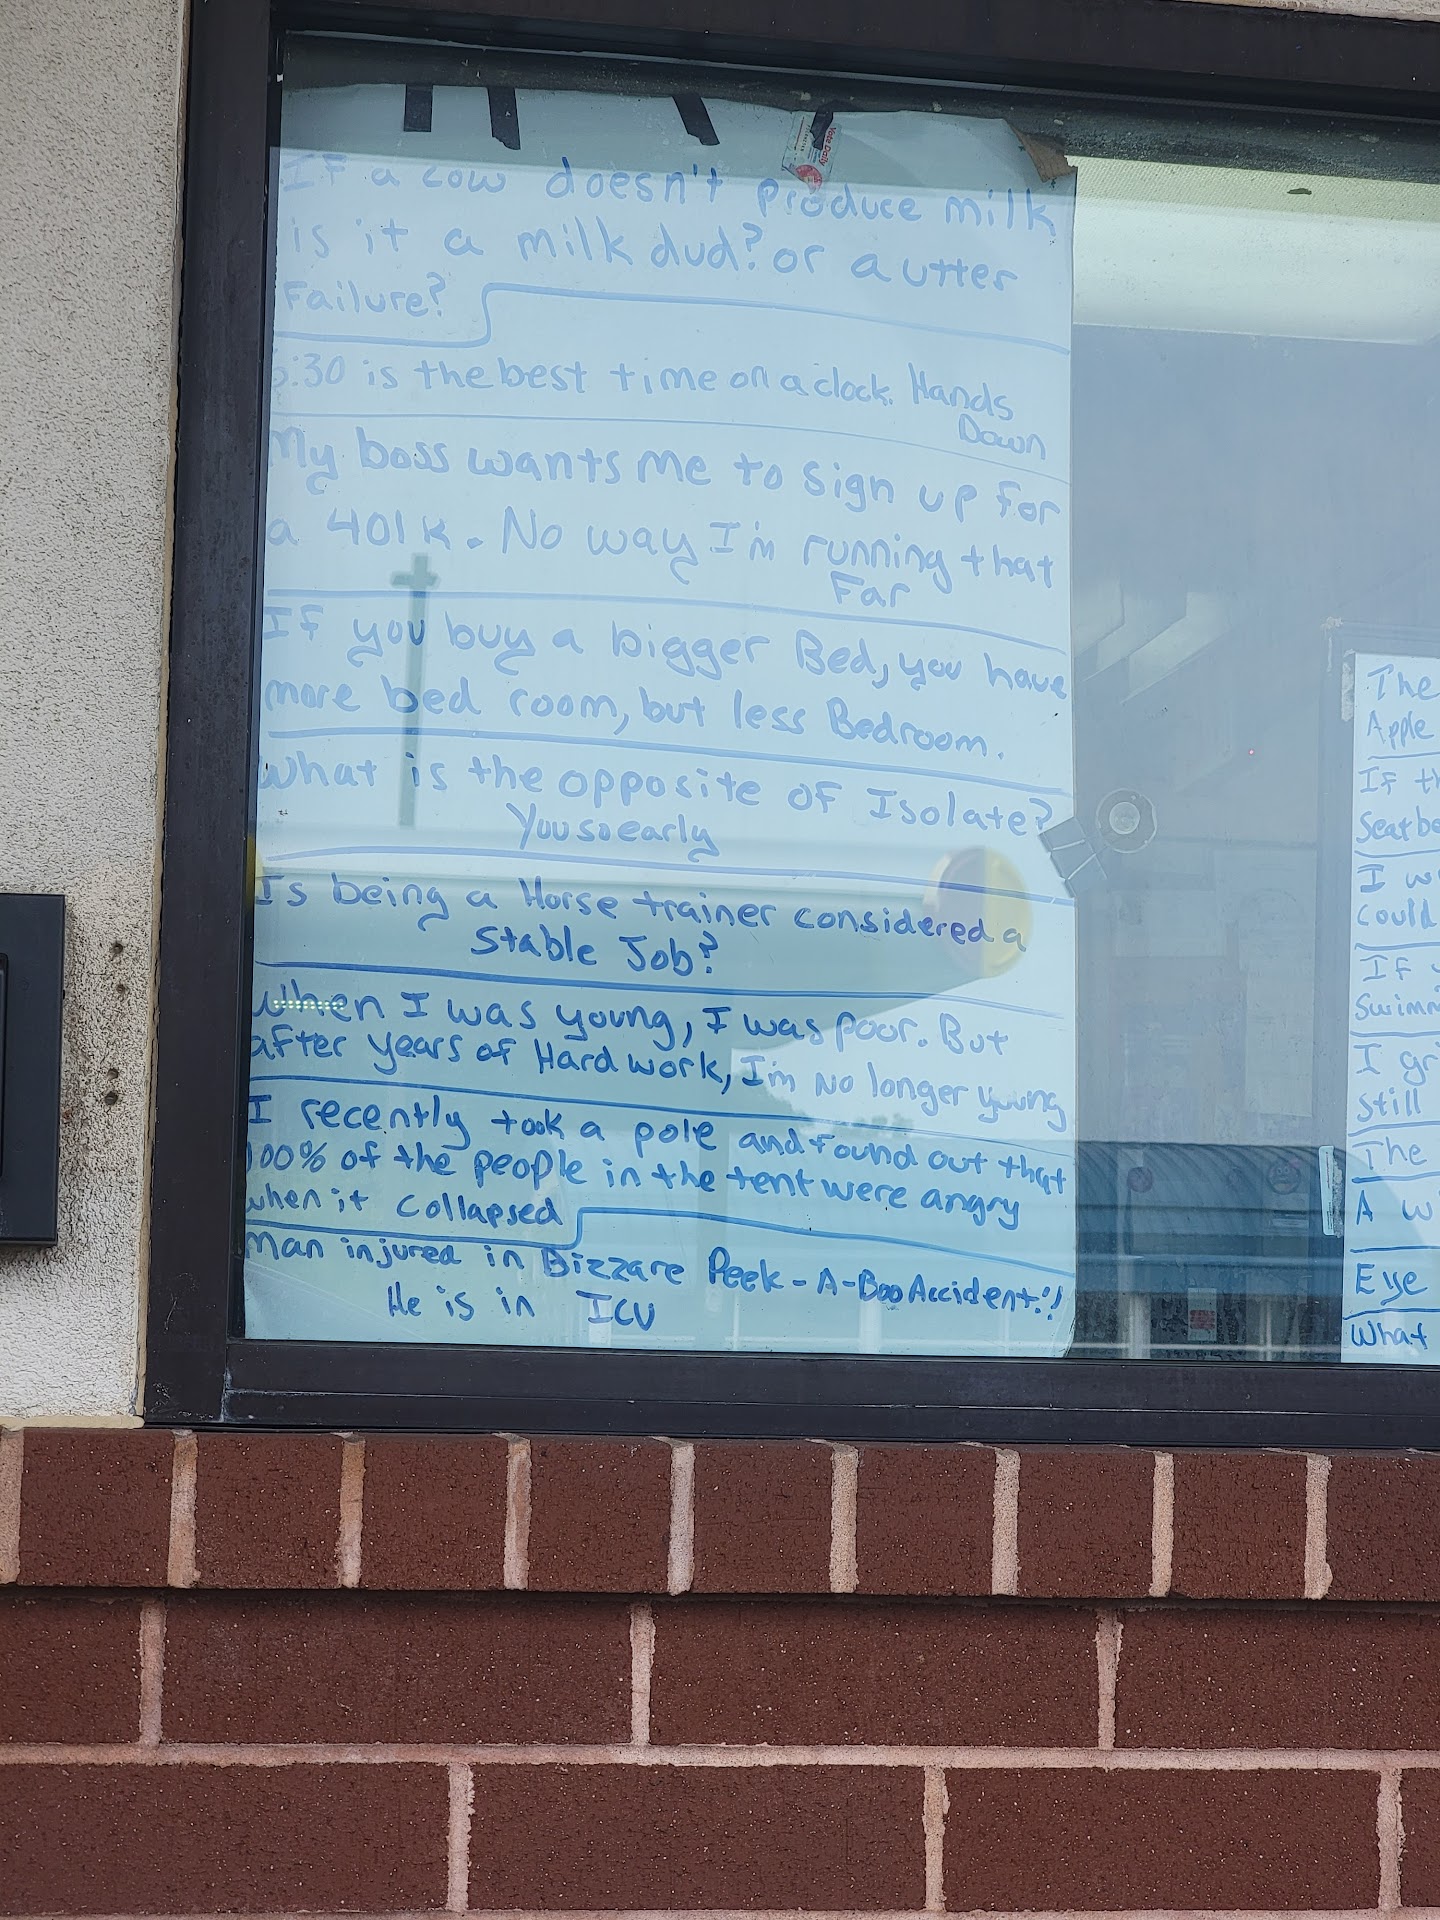 If a cow doesn't produce milk
is it a milk dud? or a utter
Failure?
:30 is the best time on a clock. Hands
Down
My boss wants me to sign up for
a 401k. No way I'm running that
Far
If you buy a bigger Bed, you have
more bed room, but less Bedroom.
What is the opposite of Isolate?
Yousoearly
Is being a Horse trainer considered a
Stable Job?
When I was young, I was poor. But
after years of Hard work, I'm No longer young
I recently took a pole and found out that
100% of the people in the tent were angry
when it collapsed
Man injured in Bizzare Peek-A-Boo Accident!!
He is in ICU
The
Apple
If th
Seatbe
I w
could
If
Swimm
I gr
Still
The
A w
Eye
What
Vote Daily